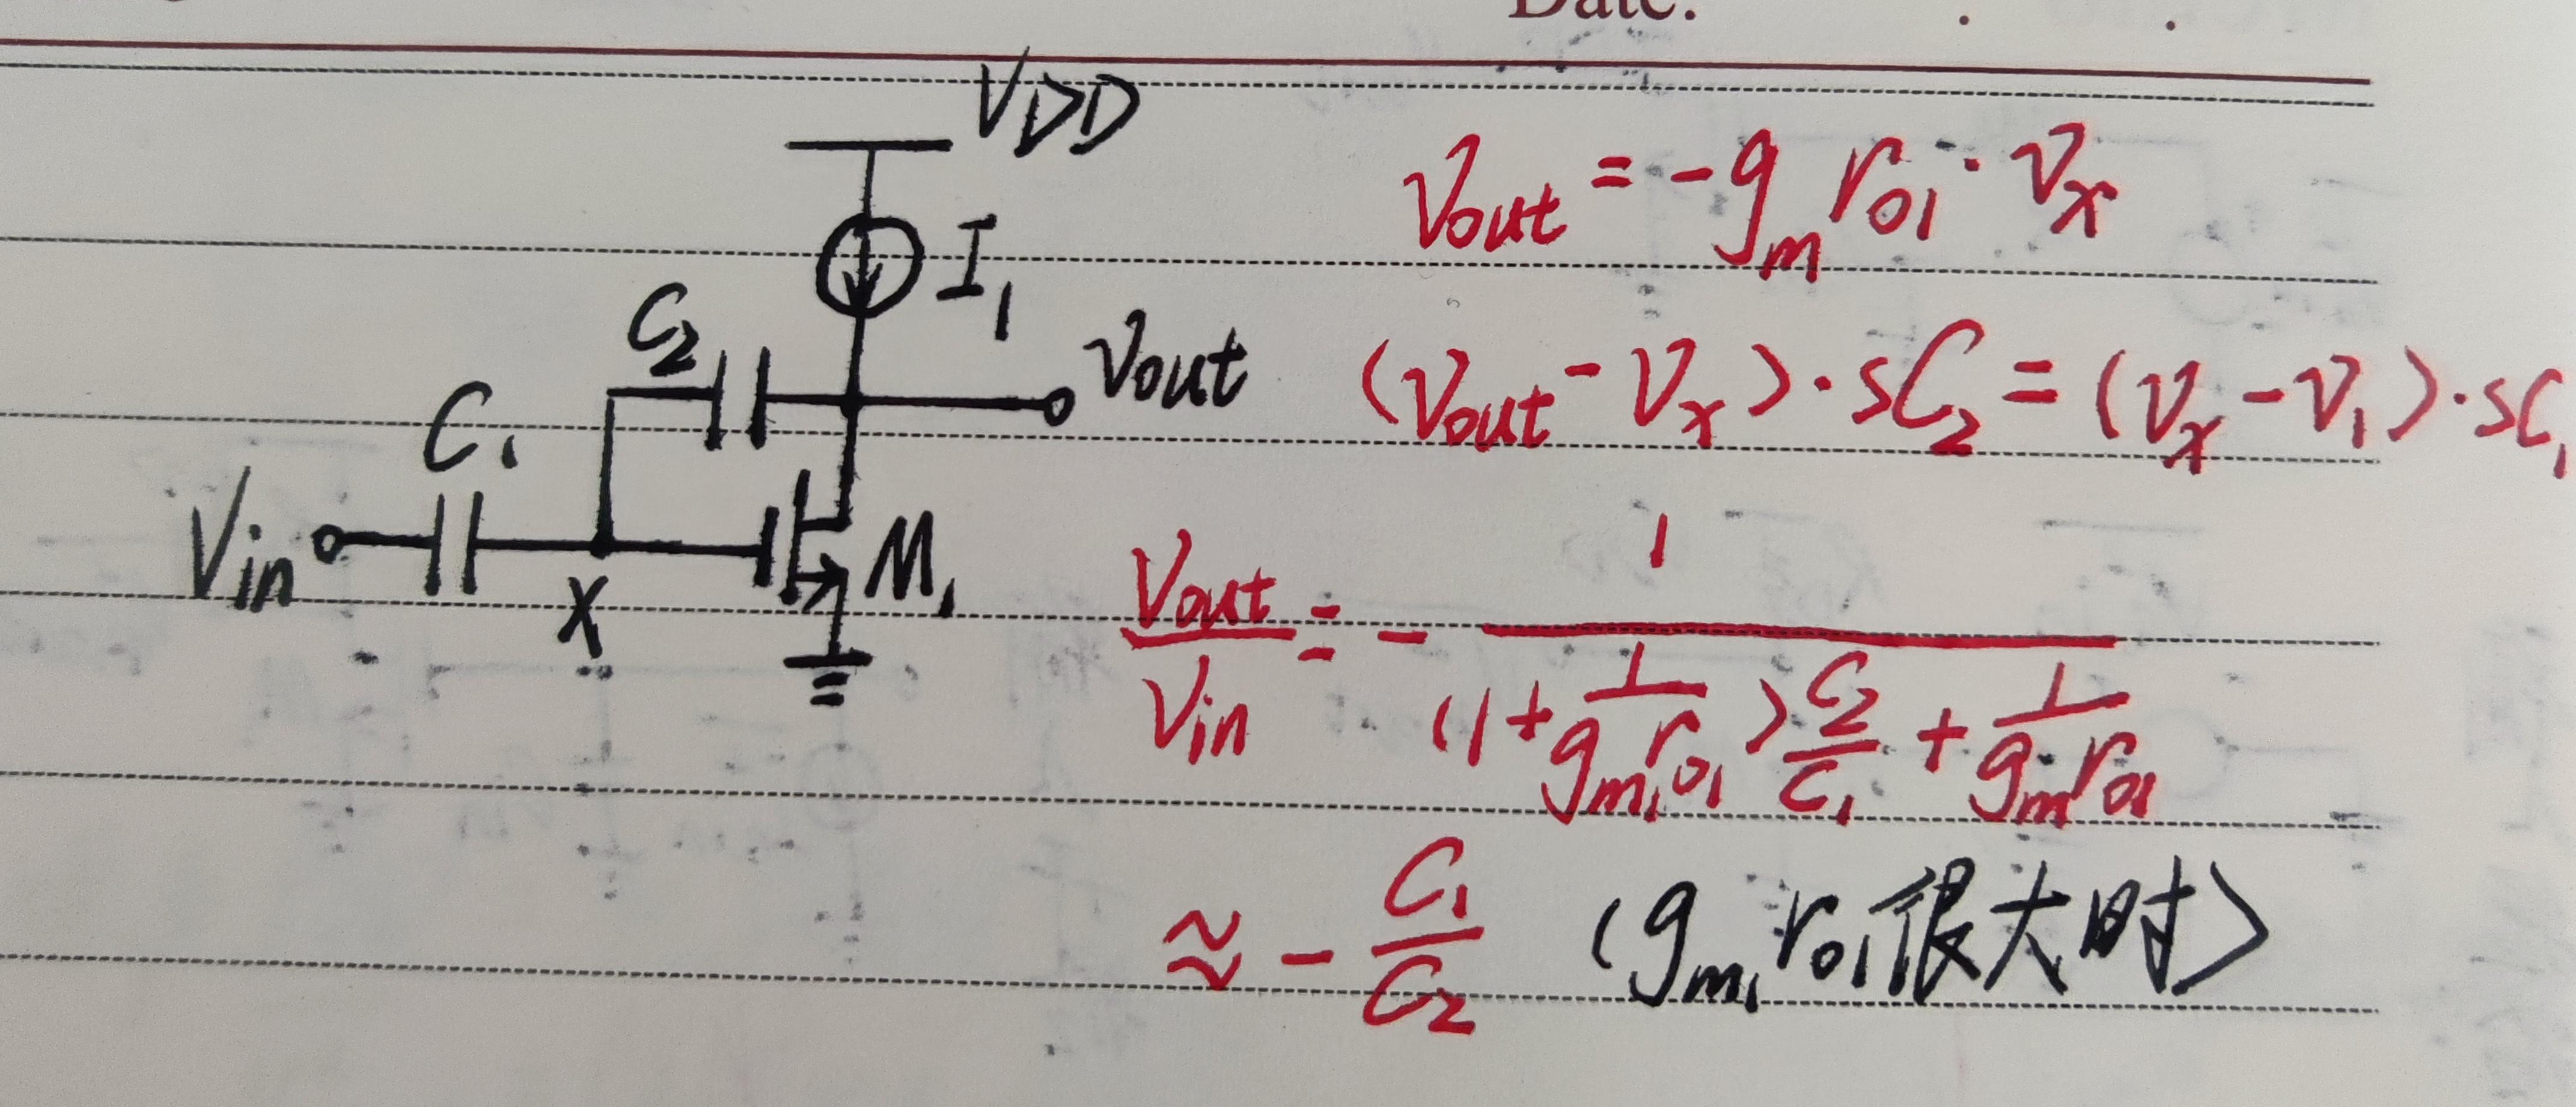 Date:
VDD
I₁
C₂
Vout
C₁
Vin
X
M₁
Vout = -gₘ r₀₁ · Vₓ
(Vout - Vₓ) · sC₂ = (Vₓ - V₁) · sC₁
Vout/Vin = - 1/((1 + 1/(gₘ₁r₀₁)) C₂/C₁ + 1/(gₘr₀₁))
≈ - C₁/C₂ (gₘ₁r₀₁很大时)